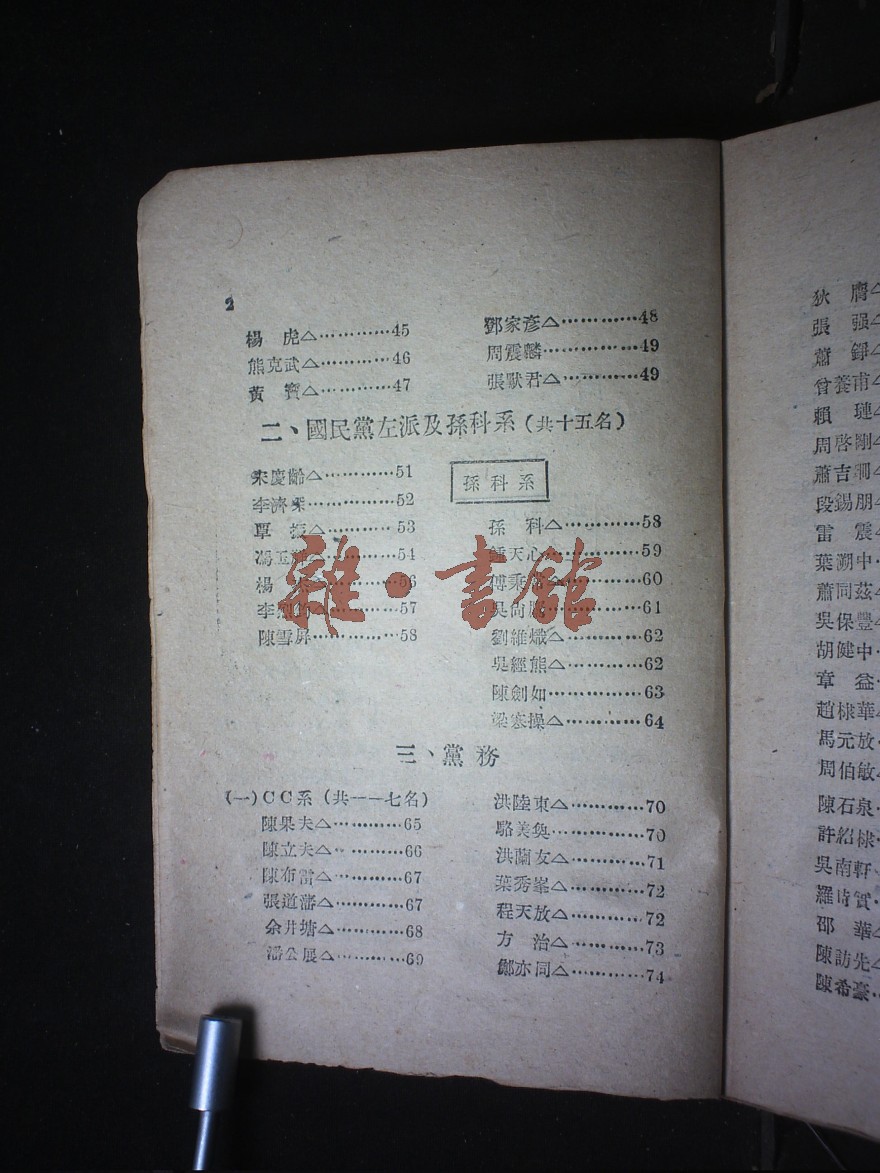 2
楊　虎△…………45
熊克武△…………46
黃　寶△…………47
鄧家彥△…………48
周震麟……………49
張默君△…………49
二、國民黨左派及孫科系(共十五名)
宋慶齡△…………51
李濟琛……………52
覃　振△…………53
馮玉　……………54
楊　　……………56
李烈鈞△…………57
陳雪屏……………58
孫科系
孫　科△…………58
鍾天心……………59
傅秉常△…………60
吳尚鷹……………61
劉維熾△…………62
吳經熊△…………62
陳劍如……………63
梁寒操△…………64
三、黨務
(一)CC系(共一一七名)
陳果夫△…………65
陳立夫△…………66
陳布雷△…………67
張道藩△…………67
余井塘△…………68
潘公展△…………69
洪陸東△…………70
駱美奐……………70
洪蘭友△…………71
葉秀峯△…………72
程天放△…………72
方　治△…………73
鄭亦同△…………74
狄　膺△
張　强△
蕭　錚△
曾養甫△
賴　璉△
周啓剛△
蕭吉珊△
段錫朋△
雷　震△
葉溯中
蕭同茲△
吳保豐△
胡健中
章　益
趙棣華△
馬元放
周伯敏△
陳石泉
許紹棣
吳南軒
羅時實
邵　華△
陳訪先△
陳希豪
雜·書館